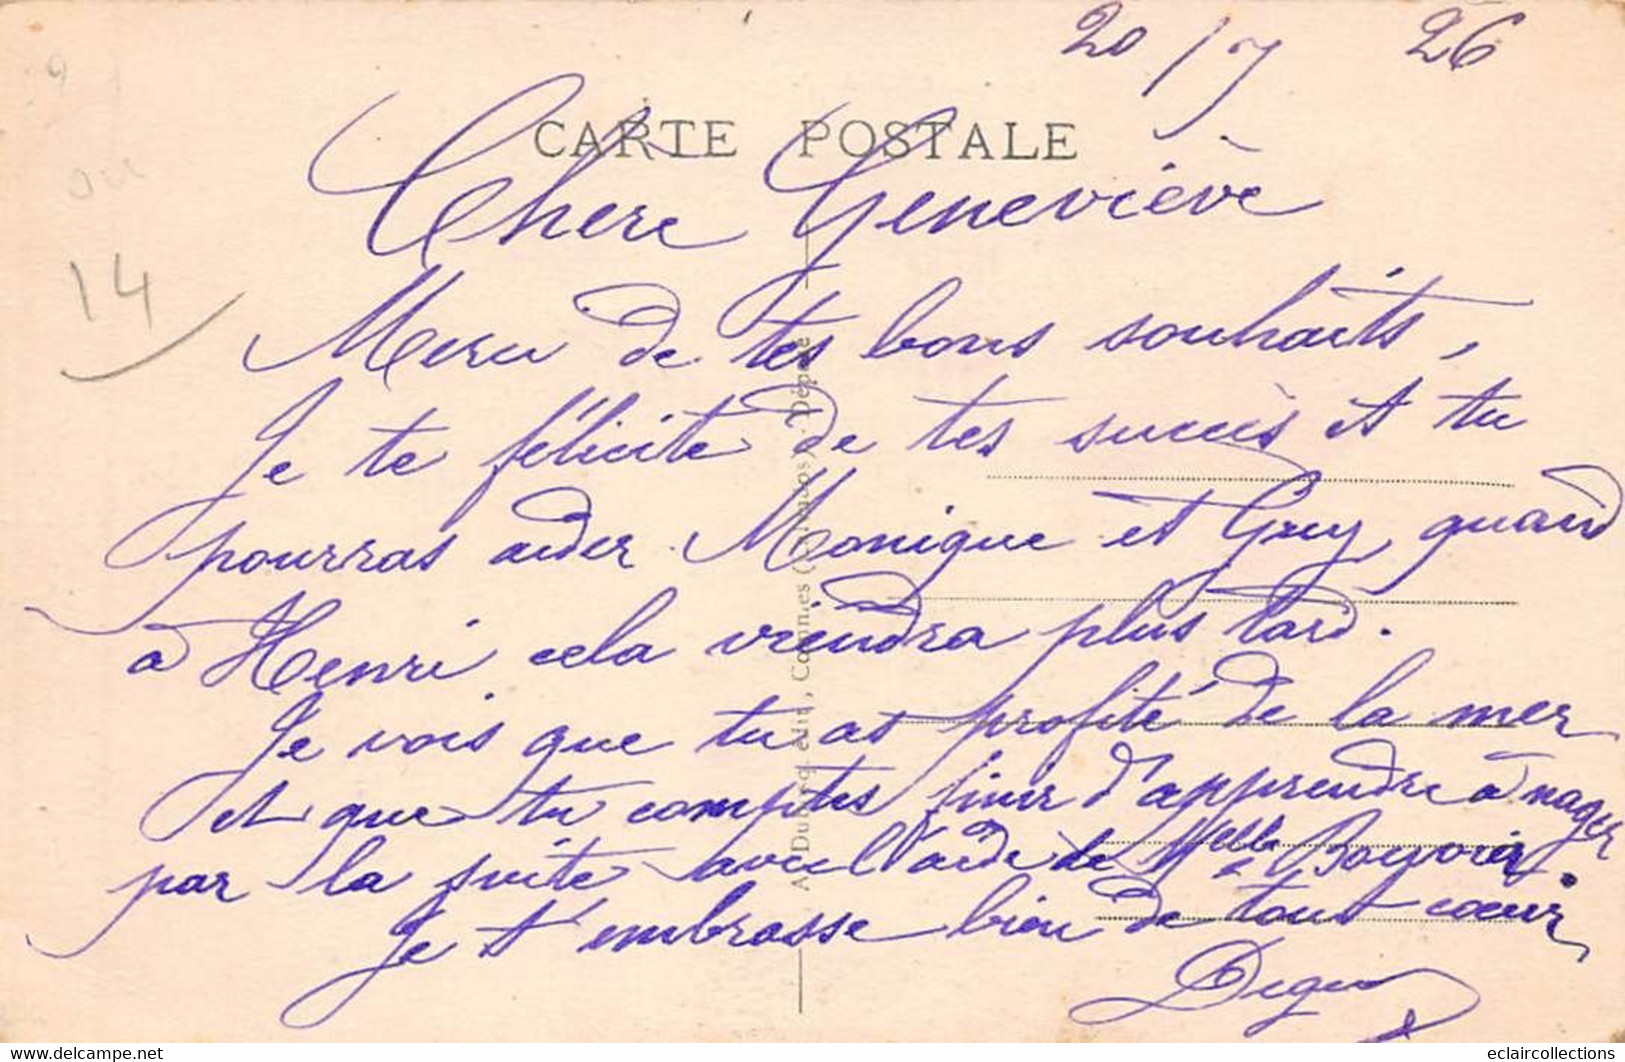 20/7 26
CARTE POSTALE
Chere Geneviève
14
Merci de tes bons souhaits,
Je te félicite de tes succès et tu
pourras aider Monique et Guy, quand
à Henri cela viendra plus tard.
Je vois que tu as profité de la mer
et que tu comptes finir d'apprendre à nager
par la suite avec l'aide de Melle
Je t'embrasse bien de tout cœur
eclaircollections
www.delcampe.net